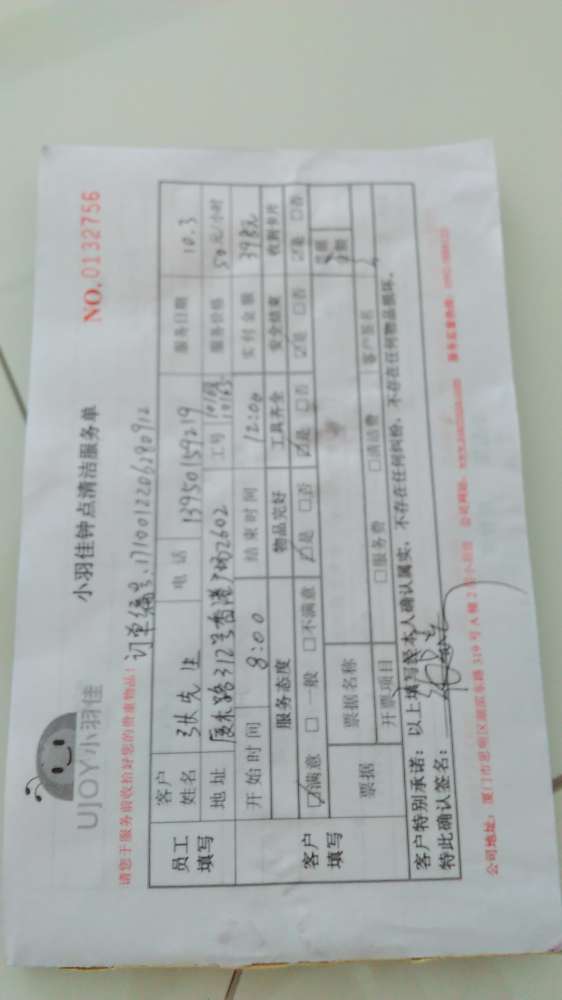 UJOY小羽佳
小羽佳钟点清洁服务单
NO.0132756
请您于服务前收拾好您的贵重物品!
订单编号:1710012206280912
员工填写
客户姓名 张先生 电话 13950159219 服务日期 10.3
地址 厦禾路312号香港广场2602 工号 服务价格 50元/小时
开始时间 8:00 结束时间 12:00 实付金额 398元
客户填写
服务态度 物品完好 工具齐全 安全结束 收到卡片
☑满意 □一般 □不满意 ☑是 □否 ☑是 □否 ☑是 □否 ☑是 □否
票据 票据名称
开票项目 □服务费 □清洁费 客户签名
客户特别承诺:以上填写经本人确认属实,不存在任何纠纷,不存在任何物品损坏。
特此确认签名:
公司地址:厦门市思明区湖滨东路319号A幢2 公司网站: 服务监督热线: